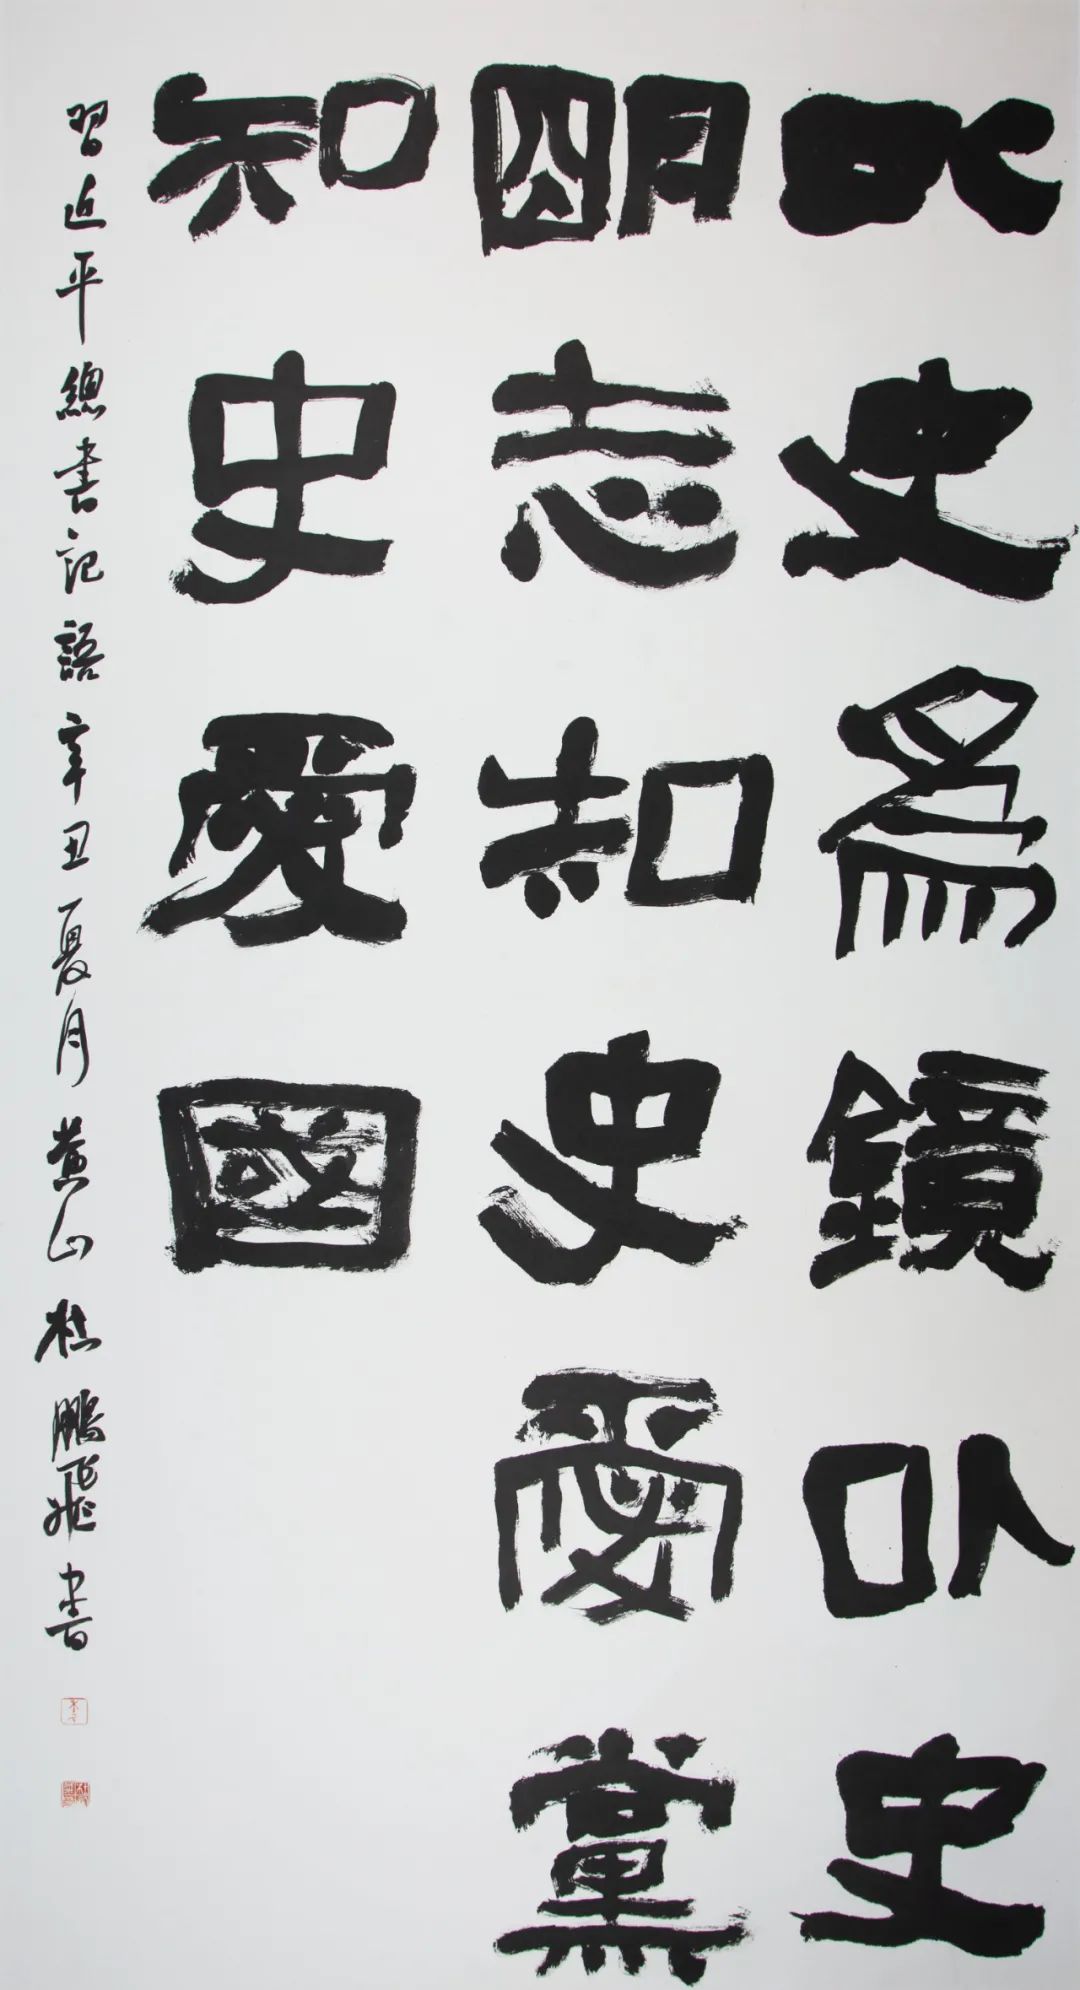 以史為鏡以史
明志知史愛黨
知史愛國
習近平總書記語辛丑夏月黄山杜鵬飛書